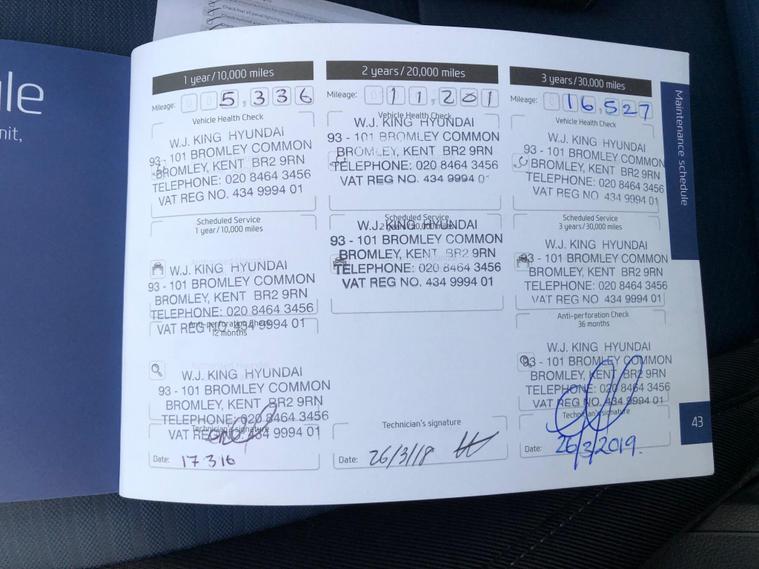 le
nit,
1 year/10,000 miles
Mileage: 0 0 5,336
Vehicle Health Check
W.J. KING HYUNDAI
93 - 101 BROMLEY COMMON
BROMLEY, KENT BR2 9RN
TELEPHONE: 020 8464 3456
VAT REG NO. 434 9994 01
Scheduled Service
1 year/10,000 miles
W.J. KING HYUNDAI
93 - 101 BROMLEY COMMON
BROMLEY, KENT BR2 9RN
TELEPHONE: 020 8464 3456
VAT REG NO. 434 9994 01
Anti-perforation Check
12 months
W.J. KING HYUNDAI
93 - 101 BROMLEY COMMON
BROMLEY, KENT BR2 9RN
TELEPHONE: 020 8464 3456
VAT REG NO. 434 9994 01
Technician's signature
Date: 17 3 16
2 years/20,000 miles
Mileage: 0 11,201
Vehicle Health Check
W.J. KING HYUNDAI
93 - 101 BROMLEY COMMON
BROMLEY, KENT BR2 9RN
TELEPHONE: 020 8464 3456
VAT REG NO. 434 9994 0
Scheduled Service
2 years/20,000 miles
W.J. KING HYUNDAI
93 - 101 BROMLEY COMMON
BROMLEY, KENT BR2 9RN
TELEPHONE: 020 8464 3456
VAT REG NO. 434 9994 01
Technician's signature
Date: 26/3/18
3 years/30,000 miles
Mileage: 0 16,527
Vehicle Health Check
W.J. KING HYUNDAI
93 - 101 BROMLEY COMMON
BROMLEY, KENT BR2 9RN
TELEPHONE: 020 8464 3456
VAT REG NO. 434 9994 01
Scheduled Service
3 years/30,000 miles
W.J. KING HYUNDAI
93 - 101 BROMLEY COMMON
BROMLEY, KENT BR2 9RN
TELEPHONE: 020 8464 3456
VAT REG NO. 434 9994 01
Anti-perforation Check
36 months
W.J. KING HYUNDAI
93 - 101 BROMLEY COMMON
BROMLEY, KENT BR2 9RN
TELEPHONE: 020 8464 3456
VAT REG NO. 434 9994 01
Technician's signature
Date: 26/3/2019.
Maintenance schedule
43